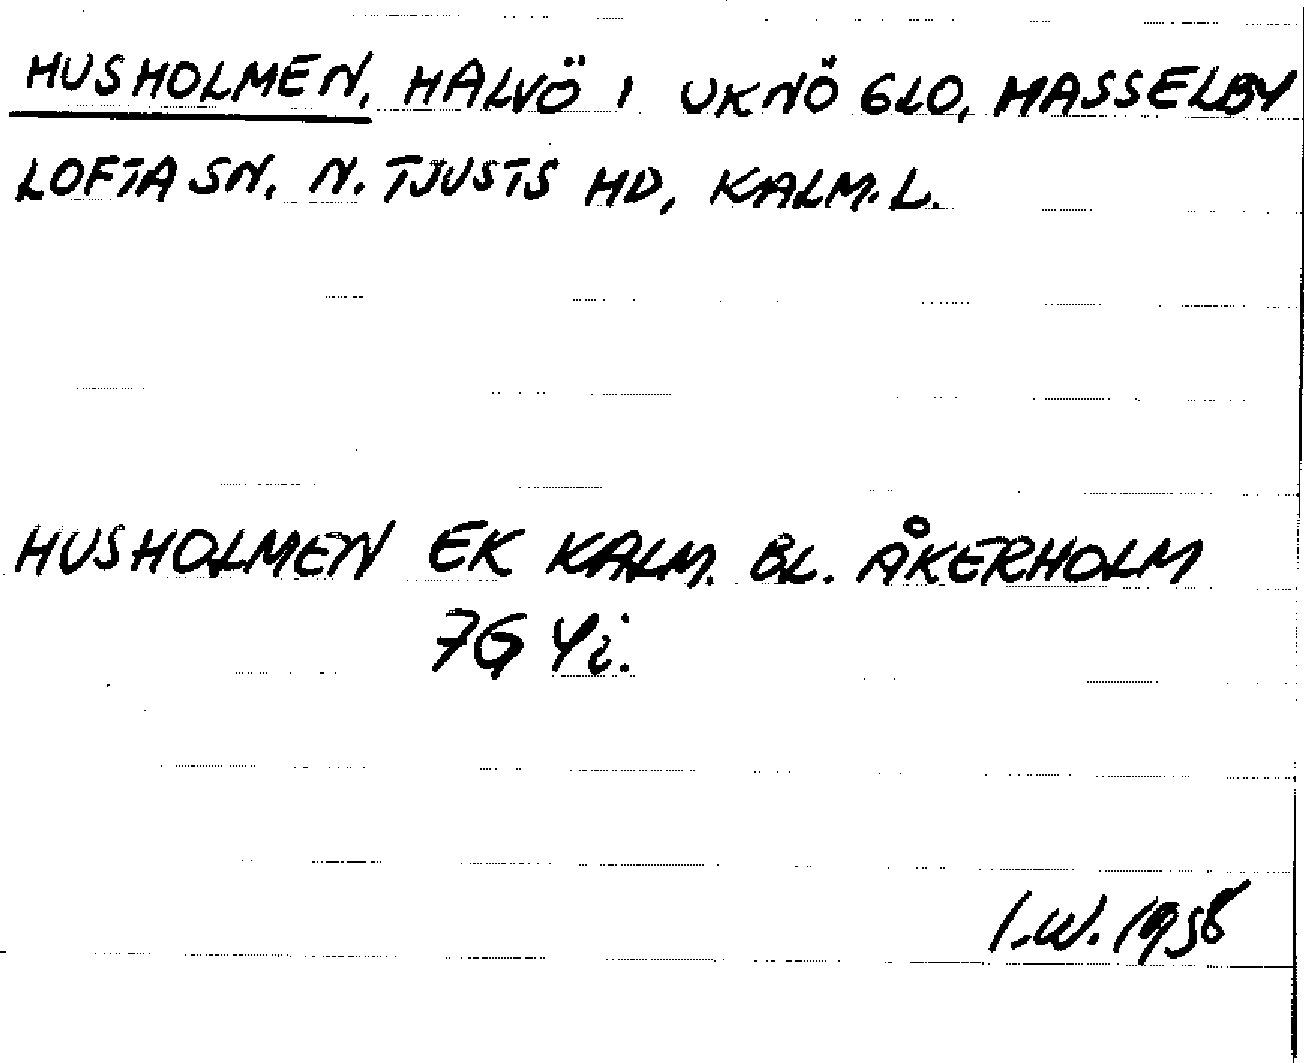 HUSHOLMEN, HALVÖ I UKNÖ GLO, HASSELBY
LOFTA SN. N. TJUSTS HD, KALM. L.
HUSHOLMEN EK KALM. BL. ÅKERHOLM
7G 4i.
I.W. 1958